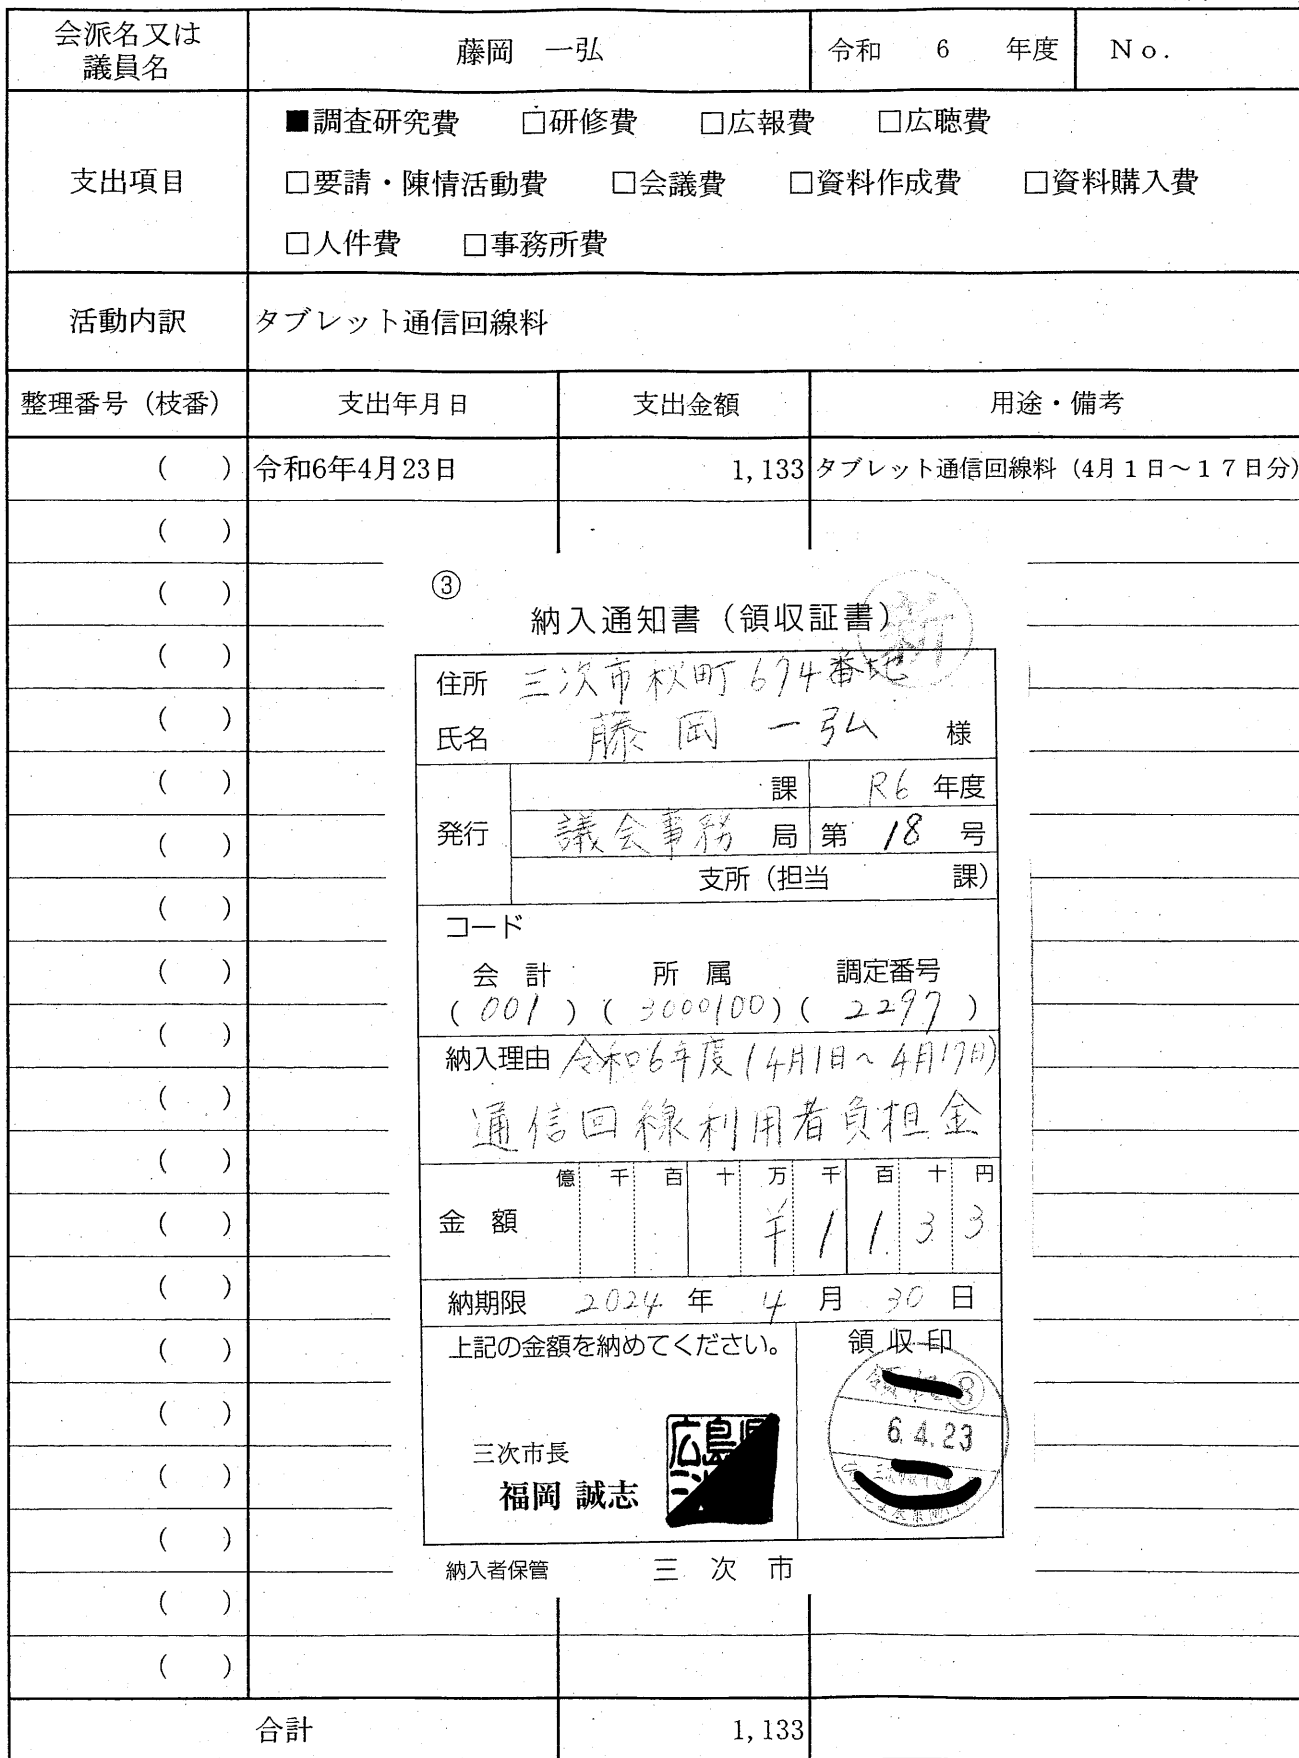 会派名又は 藤岡　一弘 令和　6　年度 Ｎｏ．
議員名
■調査研究費 □研修費 □広報費 □広聴費
支出項目 □要請・陳情活動費 □会議費 □資料作成費 □資料購入費
□人件費 □事務所費
活動内訳 タブレット通信回線料
整理番号（枝番） 支出年月日 支出金額 用途・備考
（　） 令和6年4月23日 1,133 タブレット通信回線料（4月１日～１７日分）
（　）
（　）
（　）
（　）
（　）
（　）
（　）
（　）
（　）
（　）
（　）
（　）
（　）
（　）
（　）
（　）
（　）
（　）
（　）
③
納入通知書（領収証書）
住所 三次市秋町674番地
氏名 藤岡 一弘 様
課 R6 年度
発行 議会事務 局 第 18 号
支所（担当 課）
コード
会計 所属 調定番号
(001) (3000100) (2297)
納入理由 令和6年度(4月1日～4月17日)
通信回線利用者負担金
億 千 百 十 万 千 百 十 円
金額 ￥1133
納期限 2024 年 4 月 30 日
上記の金額を納めてください。 領収印
6.4.23
三次市長
福岡 誠志
納入者保管 三次市
合計 1,133